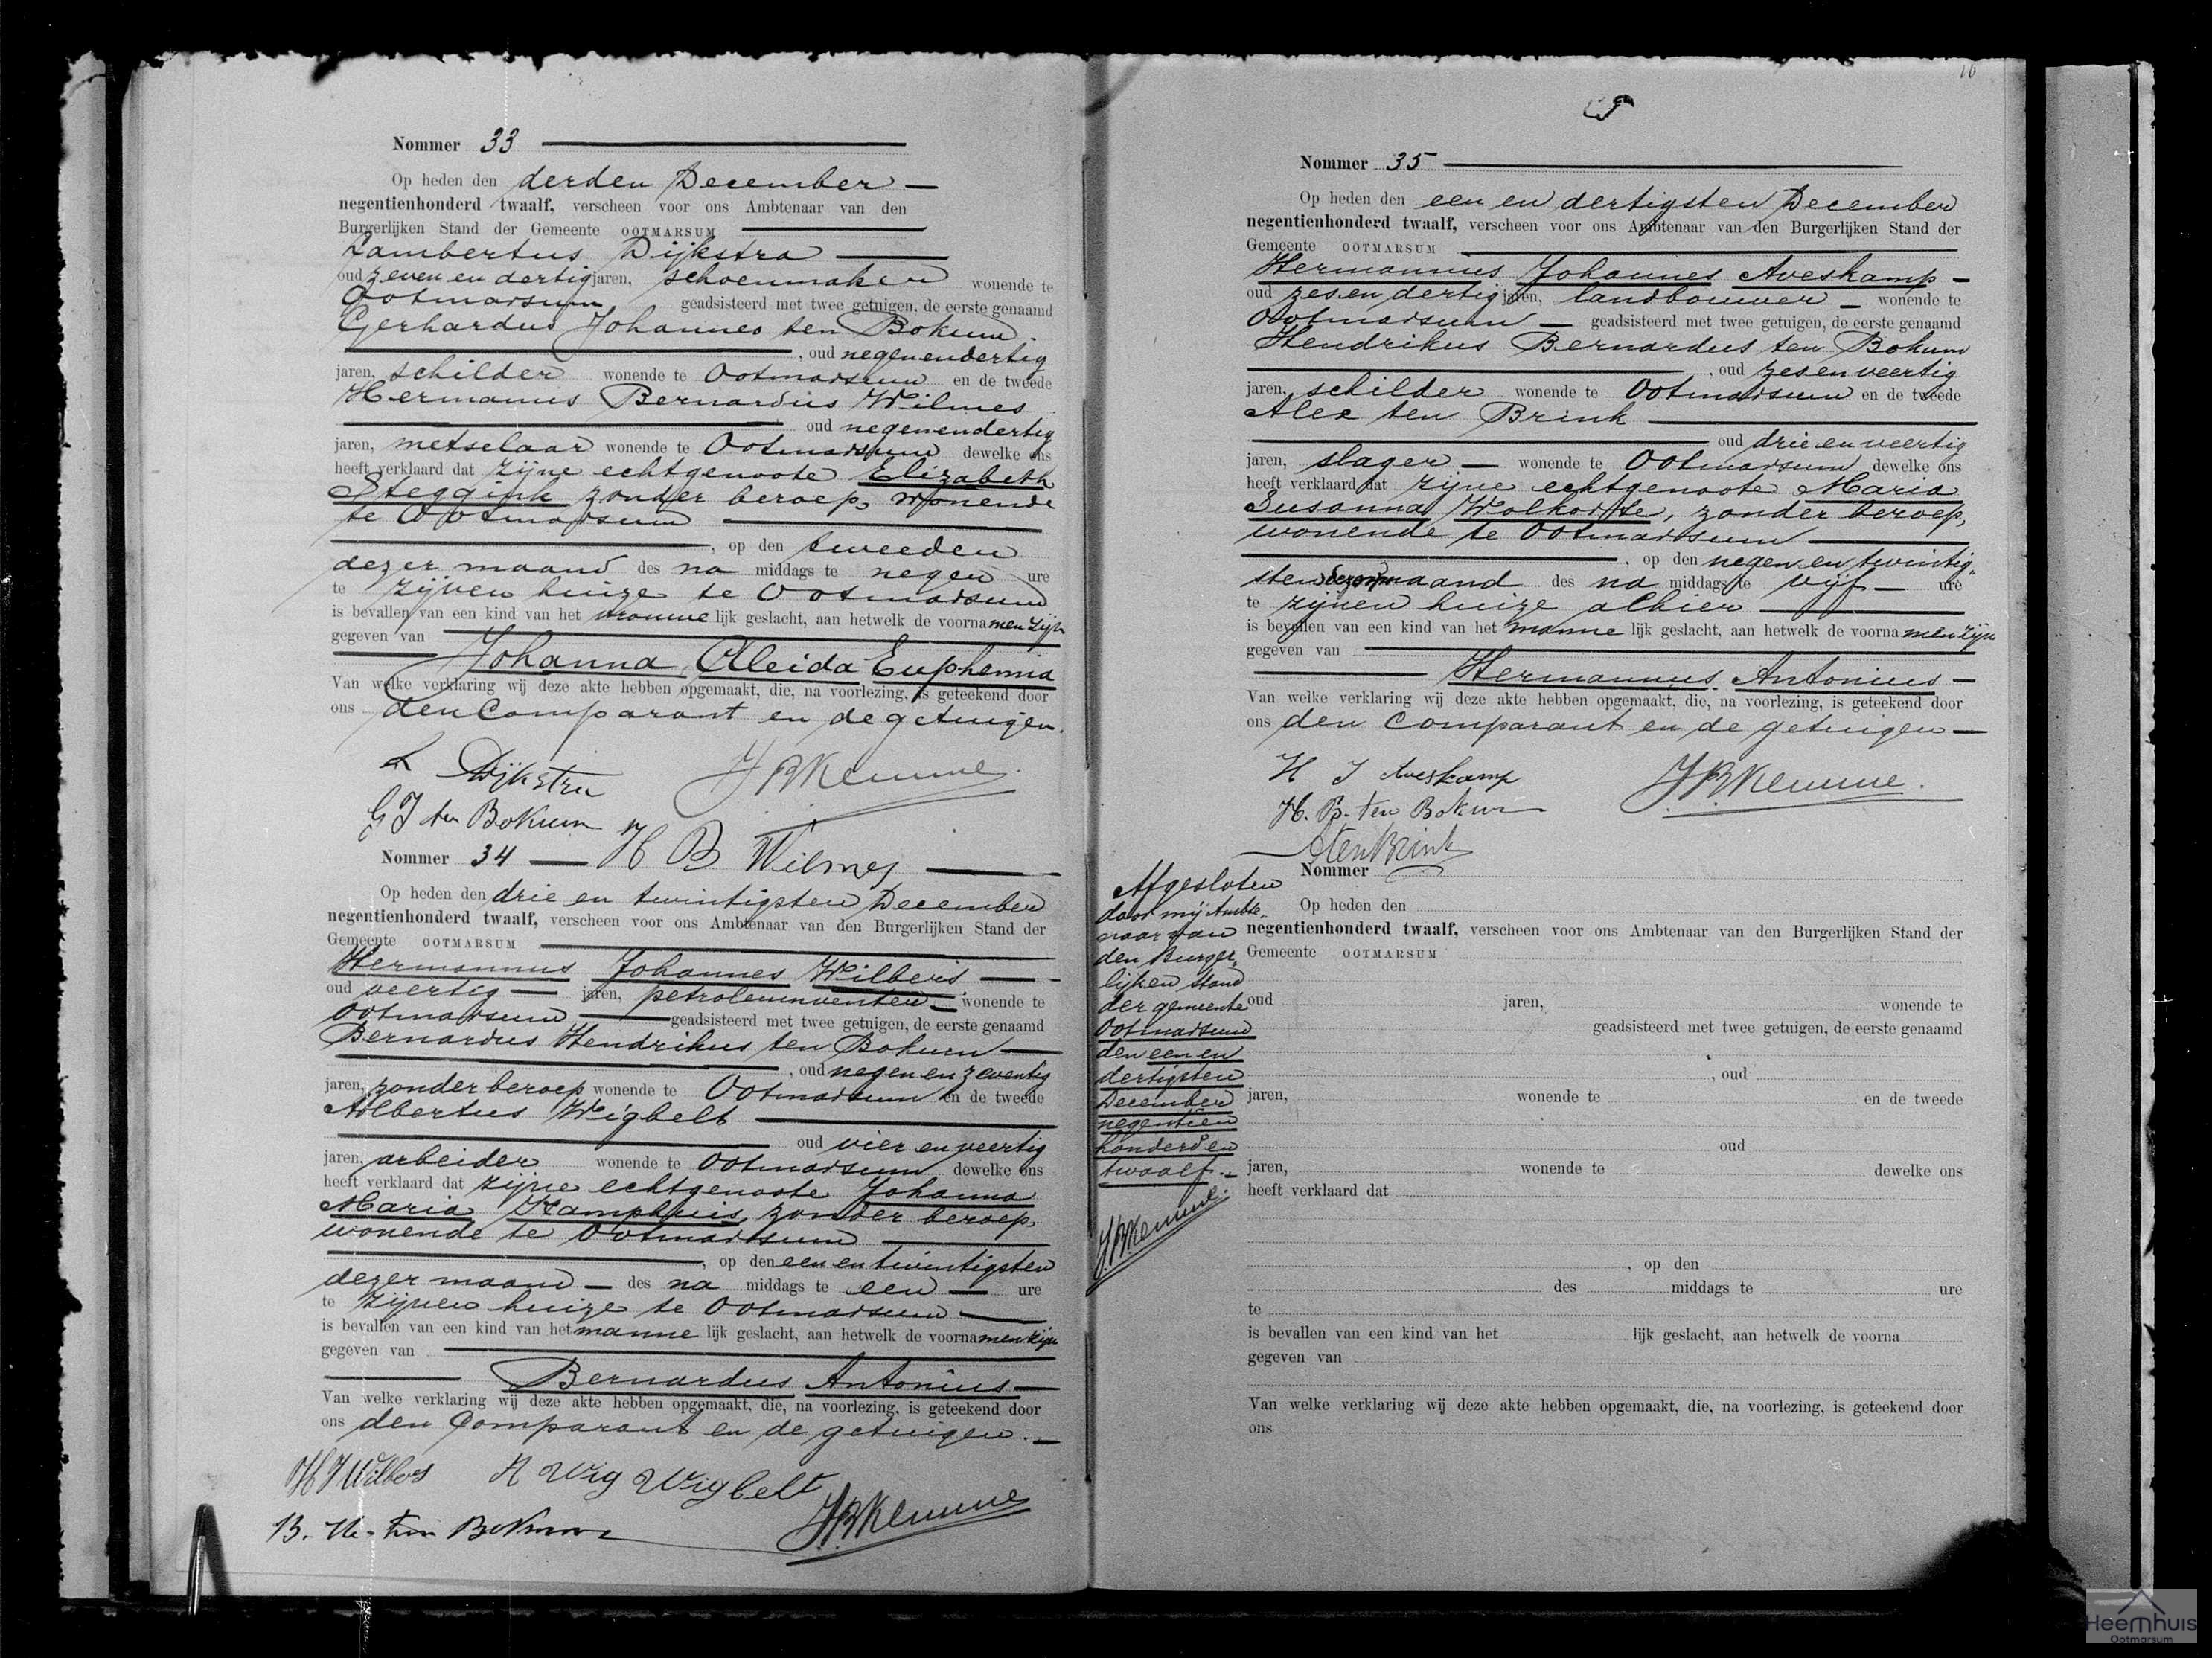 Nommer 33
Op heden den derden December
negentienhonderd twaalf, verscheen voor ons Ambtenaar van den
Burgerlijken Stand der Gemeente OOTMARSUM
Lambertus Dijkstra
oud zeven en dertig jaren, schoenmaker wonende te
Ootmarsum, geadsisteerd met twee getuigen, de eerste genaamd
Gerhardus Johannes ten Bokum
, oud negenendertig
jaren, schilder wonende te Ootmarsum en de tweede
Hermannus Bernardus Wilmes
oud negenendertig
jaren, metselaar wonende te Ootmarsum dewelke ons
heeft verklaard dat zijne echtgenoote Elizabeth
Steggink zonder beroep, wonende
te Ootmarsum
, op den tweeden
dezer maand des na middags te negen ure
te zijnen huize te Ootmarsum
is bevallen van een kind van het vrouwe lijk geslacht, aan hetwelk de voorna men zijn
gegeven van
Johanna Aleida Euphemia
Van welke verklaring wij deze akte hebben opgemaakt, die, na voorlezing, is geteekend door
ons den Comparant en de getuigen.
L Dijkstra JBKemme
G J ten Bokum H B Wilmes
Nommer 34
Op heden den drie en twintigsten December
negentienhonderd twaalf, verscheen voor ons Ambtenaar van den Burgerlijken Stand der
Gemeente OOTMARSUM
Hermannus Johannes Wilbers
oud veertig jaren, petroleumventer wonende te
Ootmarsum geadsisteerd met twee getuigen, de eerste genaamd
Bernardus Hendrikus ten Bokum
, oud negen en zeventig
jaren, zonder beroep wonende te Ootmarsum en de tweede
Albertus Wigbelt
oud vier en veertig
jaren, arbeider wonende te Ootmarsum dewelke ons
heeft verklaard dat zijne echtgenoote Johanna
Maria Kamphuis, zonder beroep,
wonende te Ootmarsum
, op den een en twintigsten
dezer maand des na middags te een ure
te zijnen huize te Ootmarsum
is bevallen van een kind van het manne lijk geslacht, aan hetwelk de voorna men zijn
gegeven van
Bernardus Antonius
Van welke verklaring wij deze akte hebben opgemaakt, die, na voorlezing, is geteekend door
ons den Comparant en de getuigen.
H J Wilbers A Wig Wigbelt
B. H. ten Bokum JBKemme
16
Nommer 35
Op heden den een en dertigsten December
negentienhonderd twaalf, verscheen voor ons Ambtenaar van den Burgerlijken Stand der
Gemeente OOTMARSUM
Hermannus Johannes Aveskamp
oud zes en dertig jaren, landbouwer wonende te
Ootmarsum geadsisteerd met twee getuigen, de eerste genaamd
Hendrikus Bernardus ten Bokum
, oud zes en veertig
jaren, schilder wonende te Ootmarsum en de tweede
Alex ten Brink
oud drie en veertig
jaren, slager wonende te Ootmarsum dewelke ons
heeft verklaard dat zijne echtgenoote Maria
Susanna Wolkorte, zonder beroep,
wonende te Ootmarsum
, op den negen en twintig-
sten dezer maand des na middags te vijf ure
te zijnen huize alhier
is bevallen van een kind van het manne lijk geslacht, aan hetwelk de voorna men zijn
gegeven van
Hermannus Antonius
Van welke verklaring wij deze akte hebben opgemaakt, die, na voorlezing, is geteekend door
ons den Comparant en de getuigen
H J Aveskamp JBKemme.
H. B. ten Bokum
A ten Brink
Afgesloten
door mij Ambte-
naar van
den Burger-
lijken stand
der gemeente
Ootmarsum
den een en
dertigsten
December
negentien
honderd en
twaalf.
JBKemme.
Nommer
Op heden den
negentienhonderd twaalf, verscheen voor ons Ambtenaar van den Burgerlijken Stand der
Gemeente OOTMARSUM
oud jaren, wonende te
geadsisteerd met twee getuigen, de eerste genaamd
, oud
jaren, wonende te en de tweede
oud
jaren, wonende te dewelke ons
heeft verklaard dat
, op den
des middags te ure
te
is bevallen van een kind van het lijk geslacht, aan hetwelk de voorna
gegeven van
Van welke verklaring wij deze akte hebben opgemaakt, die, na voorlezing, is geteekend door
ons
Heemhuis
Ootmarsum